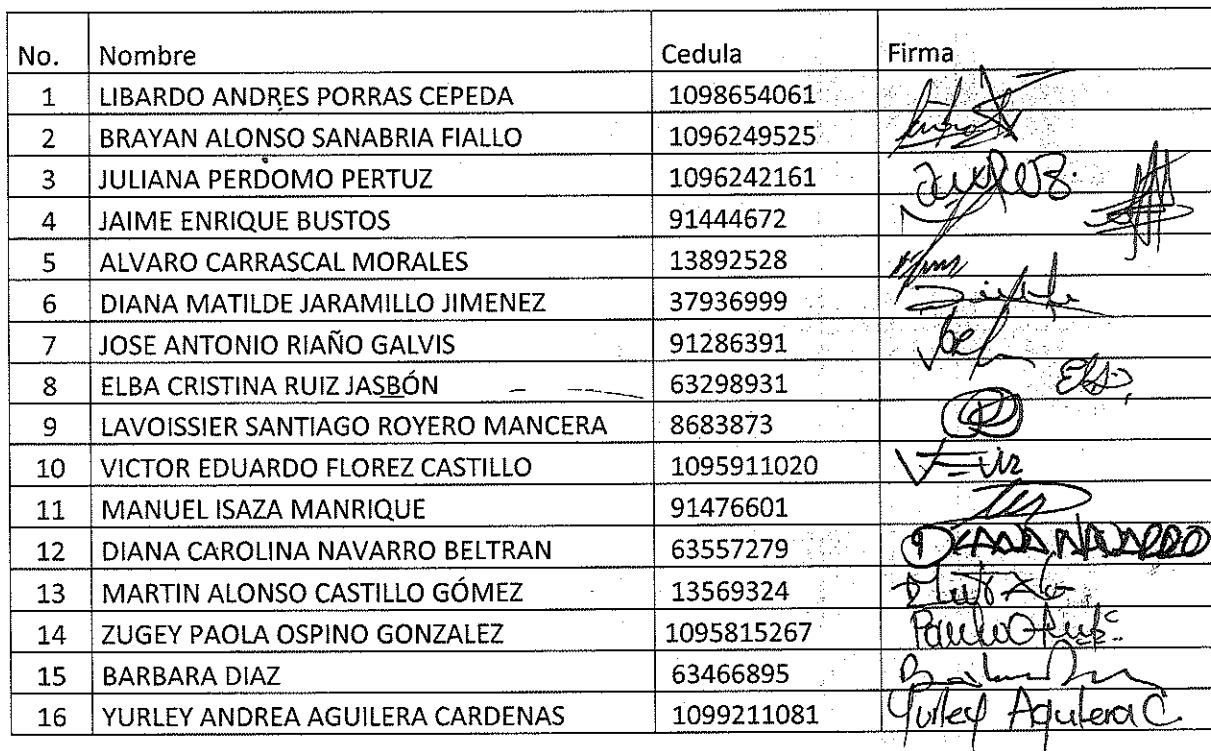 No. Nombre Cedula Firma
1 LIBARDO ANDRES PORRAS CEPEDA 1098654061
2 BRAYAN ALONSO SANABRIA FIALLO 1096249525
3 JULIANA PERDOMO PERTUZ 1096242161
4 JAIME ENRIQUE BUSTOS 91444672
5 ALVARO CARRASCAL MORALES 13892528
6 DIANA MATILDE JARAMILLO JIMENEZ 37936999
7 JOSE ANTONIO RIAÑO GALVIS 91286391
8 ELBA CRISTINA RUIZ JASBÓN 63298931
9 LAVOISSIER SANTIAGO ROYERO MANCERA 8683873
10 VICTOR EDUARDO FLOREZ CASTILLO 1095911020
11 MANUEL ISAZA MANRIQUE 91476601
12 DIANA CAROLINA NAVARRO BELTRAN 63557279 DIANA NAVARRO
13 MARTIN ALONSO CASTILLO GÓMEZ 13569324
14 ZUGEY PAOLA OSPINO GONZALEZ 1095815267
15 BARBARA DIAZ 63466895
16 YURLEY ANDREA AGUILERA CARDENAS 1099211081 Yurley Aguilera C